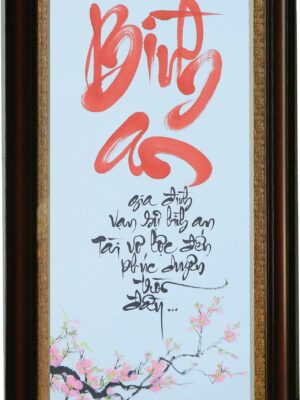 Bình
an
gia đình
vạn sự bình an
Tài vộ lộc đến
phúc duyên
tròn
đầy...